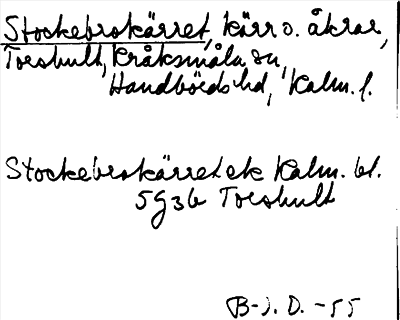 Stockebrokärret, kärr o. åkrar,
Toresbult, Kråksmåla sn,
Handbörds hd, Kalm. l.
Stockebrokärret ek Kalm. bl.
5G3b Toresbult
B-J. D. -55